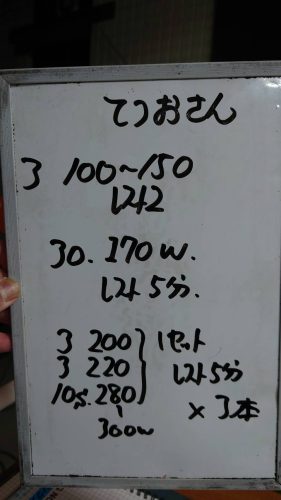 てつおさん
3 100～150
レスト2
30. 170w.
レスト5分.
3 200
3 220
10s. 280
300w
1セット
レスト5分
×3本